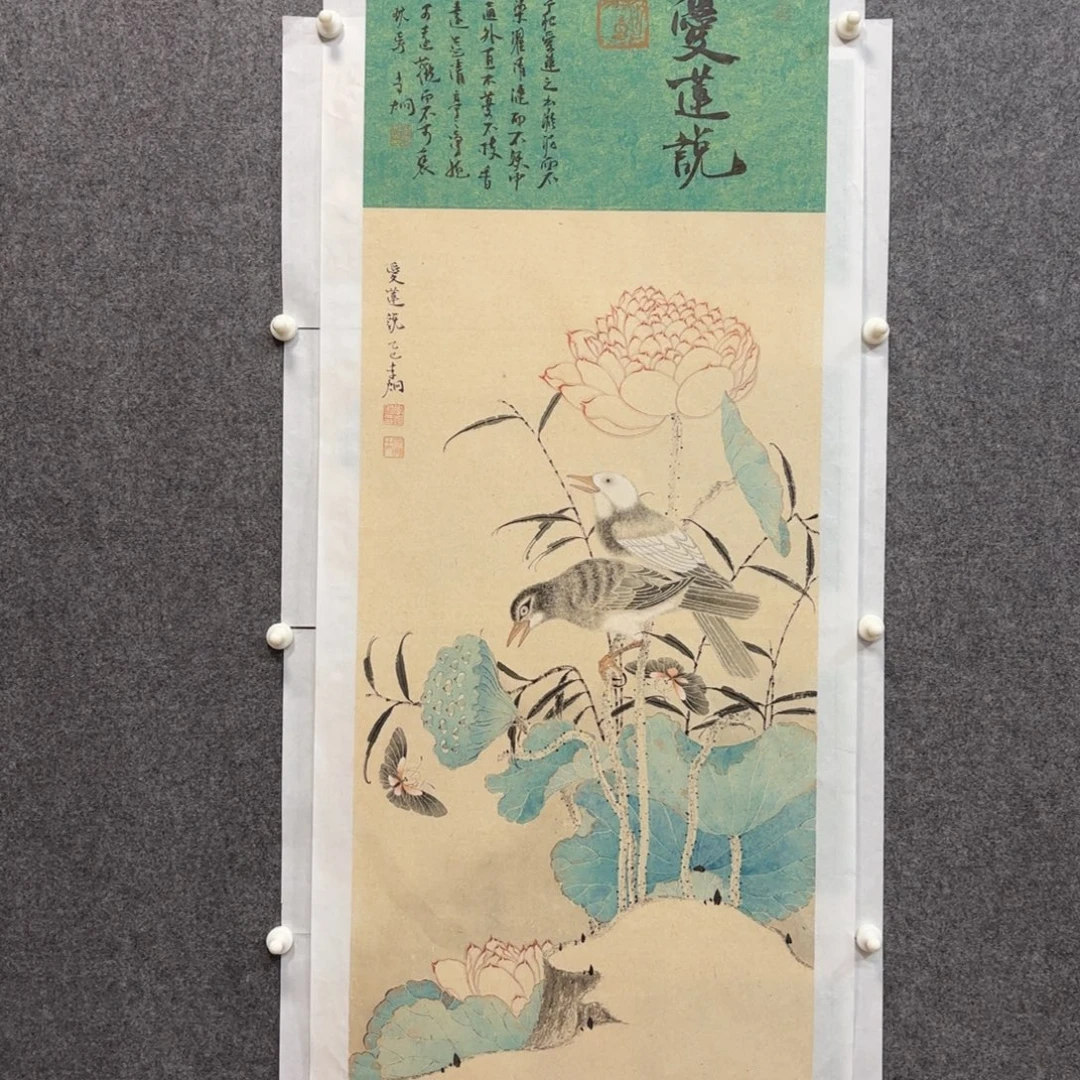 愛蓮說
予獨愛蓮之出淤泥而不
染濯清漣而不妖中
通外直不蔓不枝香
遠益清亭亭淨植
可遠觀而不可褻
玩焉 李炯
愛蓮說 乙巳 李炯